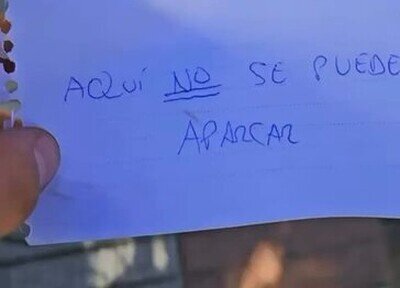 AQUÍ NO SE PUEDE
APARCAR